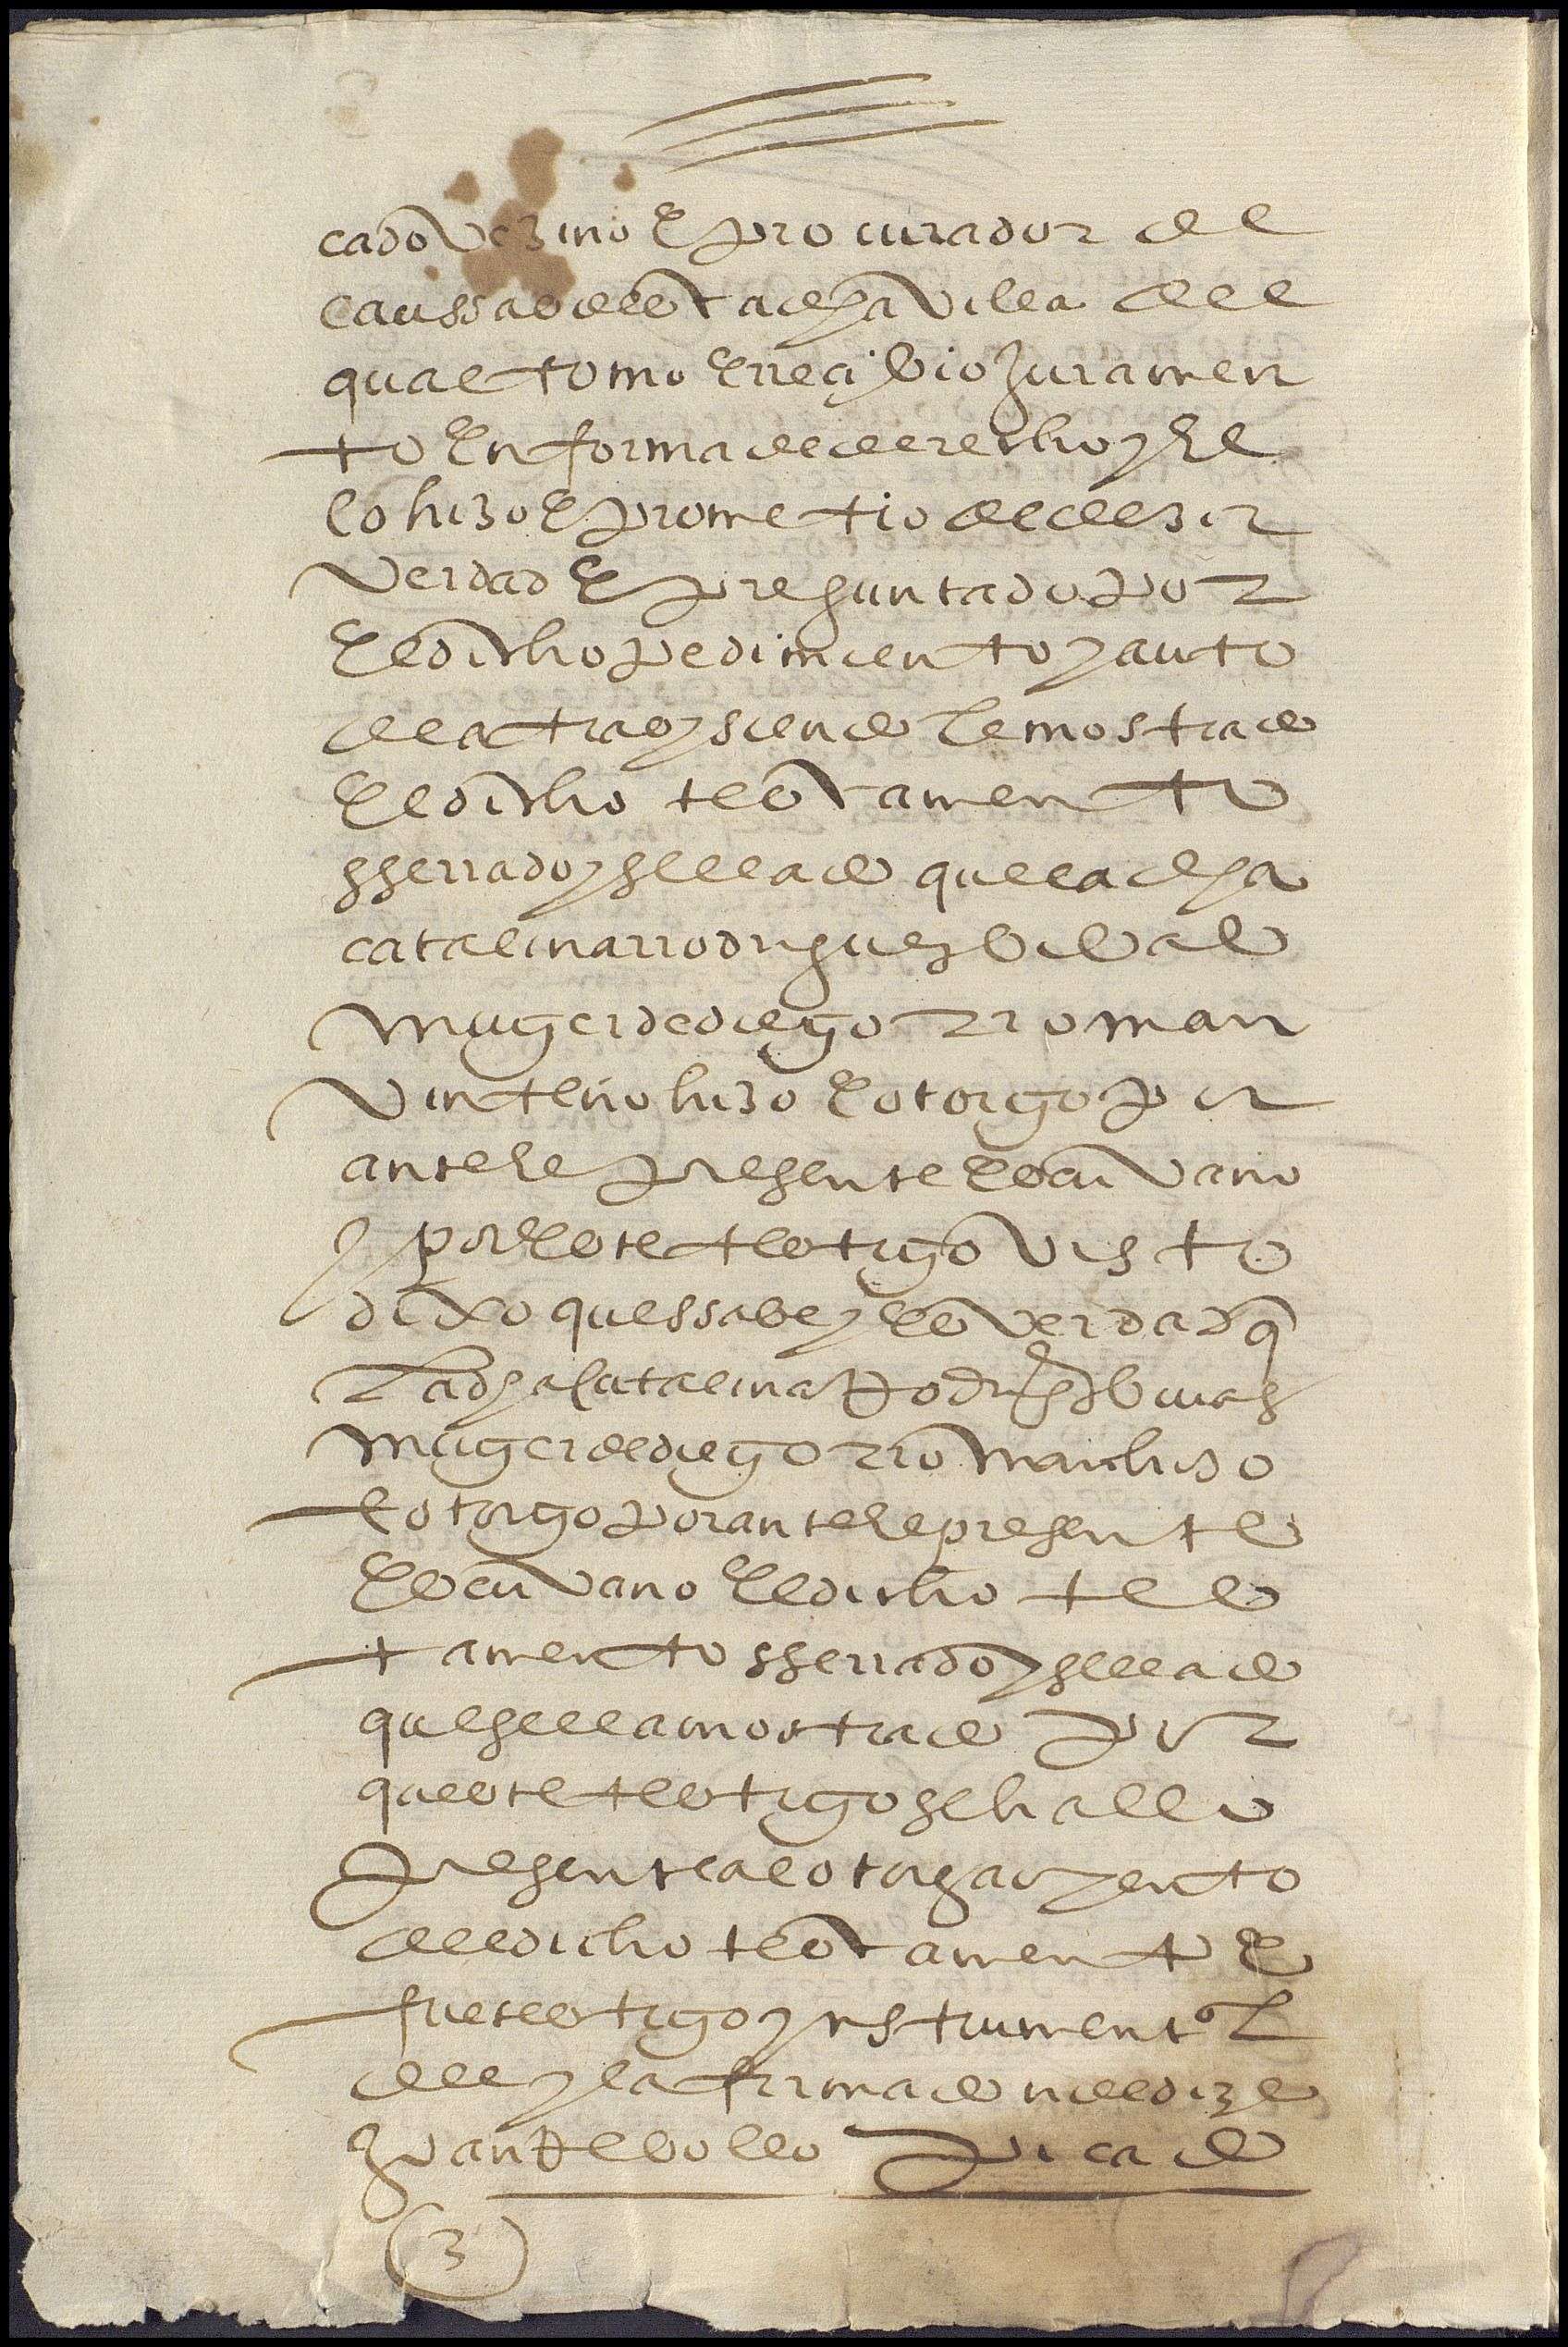 cado vezino e procurador de
caussas desta dha villa del
qual tomo e rreçibio Juramen
to en forma de derecho y el
lo hizo e prometio de dezir
verdad e preguntado por
el dicho pedimiento y auto
de atras y siendole mostrado
el dicho testamento
sserrado y sellado que la dha
catalina rrodriguez bibas
muger de diego rroman
vinteño hizo e otorgo por
ante el presente escrivano
y por este testigo visto
dixo que ssabe y es verdad q
La dha Catalina Rodrigz bivas
muger de diego rroman hizo
e otorgo por ante el presente
escrivano el dicho tes
tamento sserrado y sellado
que se le a mostrado por
que este testigo se hallo
presente al otorgamyento
del dicho testamento e
fue testigo ynstrumentol
del y la firma do nde dize
Juan Rebollo picado
(3)